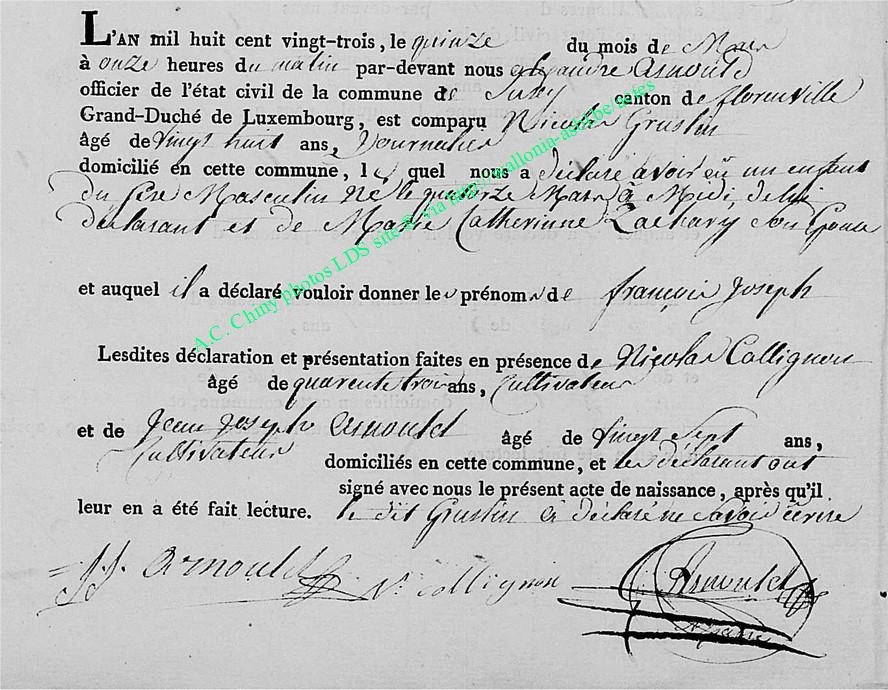 L'AN mil huit cent vingt-trois, le quinze du mois de Mars
à onze heures du matin par-devant nous alexandre Arnould
officier de l'état civil de la commune de Suxy canton de florenville
Grand-Duché de Luxembourg, est comparu Nicolas Gruslin
âgé de vingt huit ans, Journalier
domicilié en cette commune, le quel nous a déclaré avoir eü un enfant
du sexe Masculin né le quatorze Mars à Midi, de lui
déclarant et de Marie Catherinne Zachary son Epouse
et auquel il a déclaré vouloir donner les prénoms de françois Joseph
Lesdites déclaration et présentation faites en présence de Nicolas Collignon
âgé de quarente trois ans, Cultivateur
et de Jean Joseph Arnould âgé de vingt Sept ans,
Cultivateur domiciliés en cette commune, et les déclarant ont
signé avec nous le présent acte de naissance, après qu'il
leur en a été fait lecture. le dit Gruslin a déclaré ne savoir écrire
J.J. Arnould Ns. Collignon Arnould
A.C. Chiny photos LDS site © via http://wallonia-asbl.be/sites